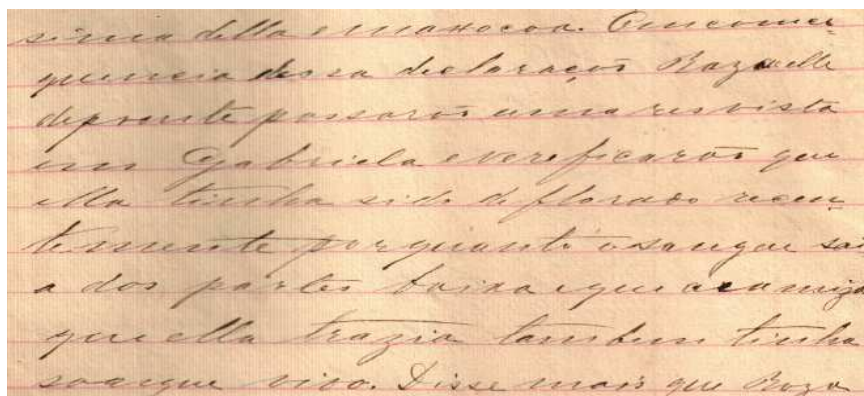 sima della e maxocoa. Em conce=
quencia dessa declaração Roza e elle
depoente passarão uma revista
em Gabriela e vereficarão que
ella tinha sido deflorado recen=
temente porquanto o sangue sai
a dos partes baixa e que a camiza
que ella trazia tambem tinha
soangue vivo. Disse mais que Roza